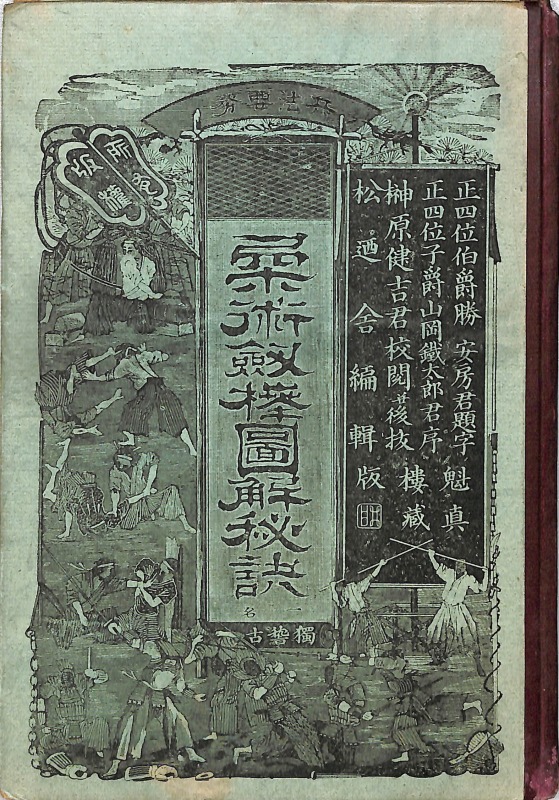 兵法要務
正四位伯爵勝 安房君題字 魁真
正四位子爵山岡鐵太郎君序
榊原健吉君校閲幷後抜 樓藏
松廼舎編輯 版
柔術劔棒圖解秘訣
一名
獨稽古
版權
所有